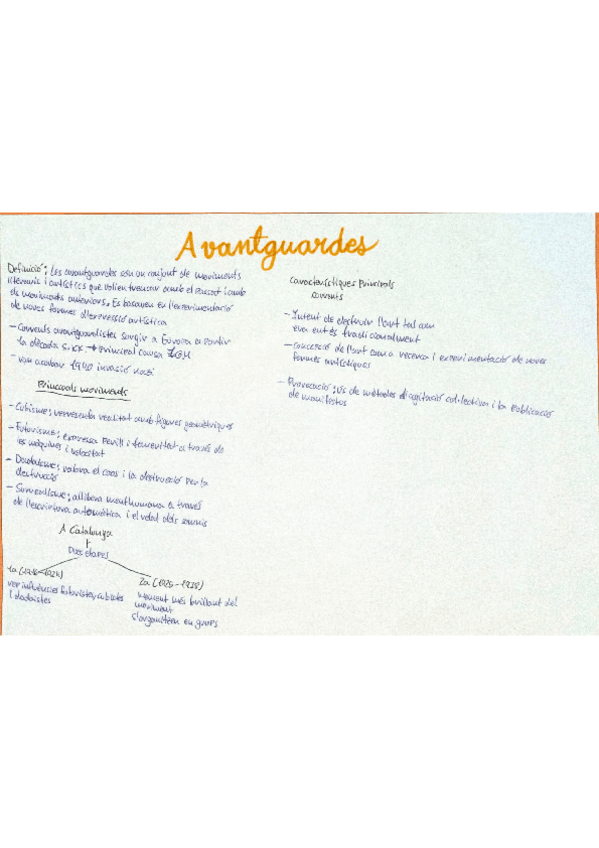 Avantguardes
Definició: Les avantguardes són un conjunt de moviments
literaris i artístics que volien trencar amb el passat i amb
els moviments anteriors. Es basaven en l'experimentació
de noves formes d'expressió artística
- Corrents avantguardistes sorgir a Europa a partir
la dècada s.XX → principal causa IGM
- van acabar 1940 invasió nazi
Principals moviments
- Cubisme: representa realitat amb figures geomètriques
- Futurisme: expressa perill i temeritat a través de
les màquines i velocitat
- Dadaisme: valora el caos i la destrucció per la
destrucció
- Surrealisme: allibera ment humana a través
de l'escriptura automàtica i el relat dels somnis
A Catalunya
Dues etapes
1a (1916-1924)
rep influències futuristes, cubistes
i dadaistes
2a (1925-1938)
Moment més brillant del
moviment
S'organitzen en grups
Característiques Principals
corrents
- Intent de destruir l'art tal com
era entés tradicionalment
- Concepció de l'art com a recerca i experimentació de noves
formes artístiques
- Provocació: ús de mètodes d'agitació col·lectiva i la publicació
de manifestos